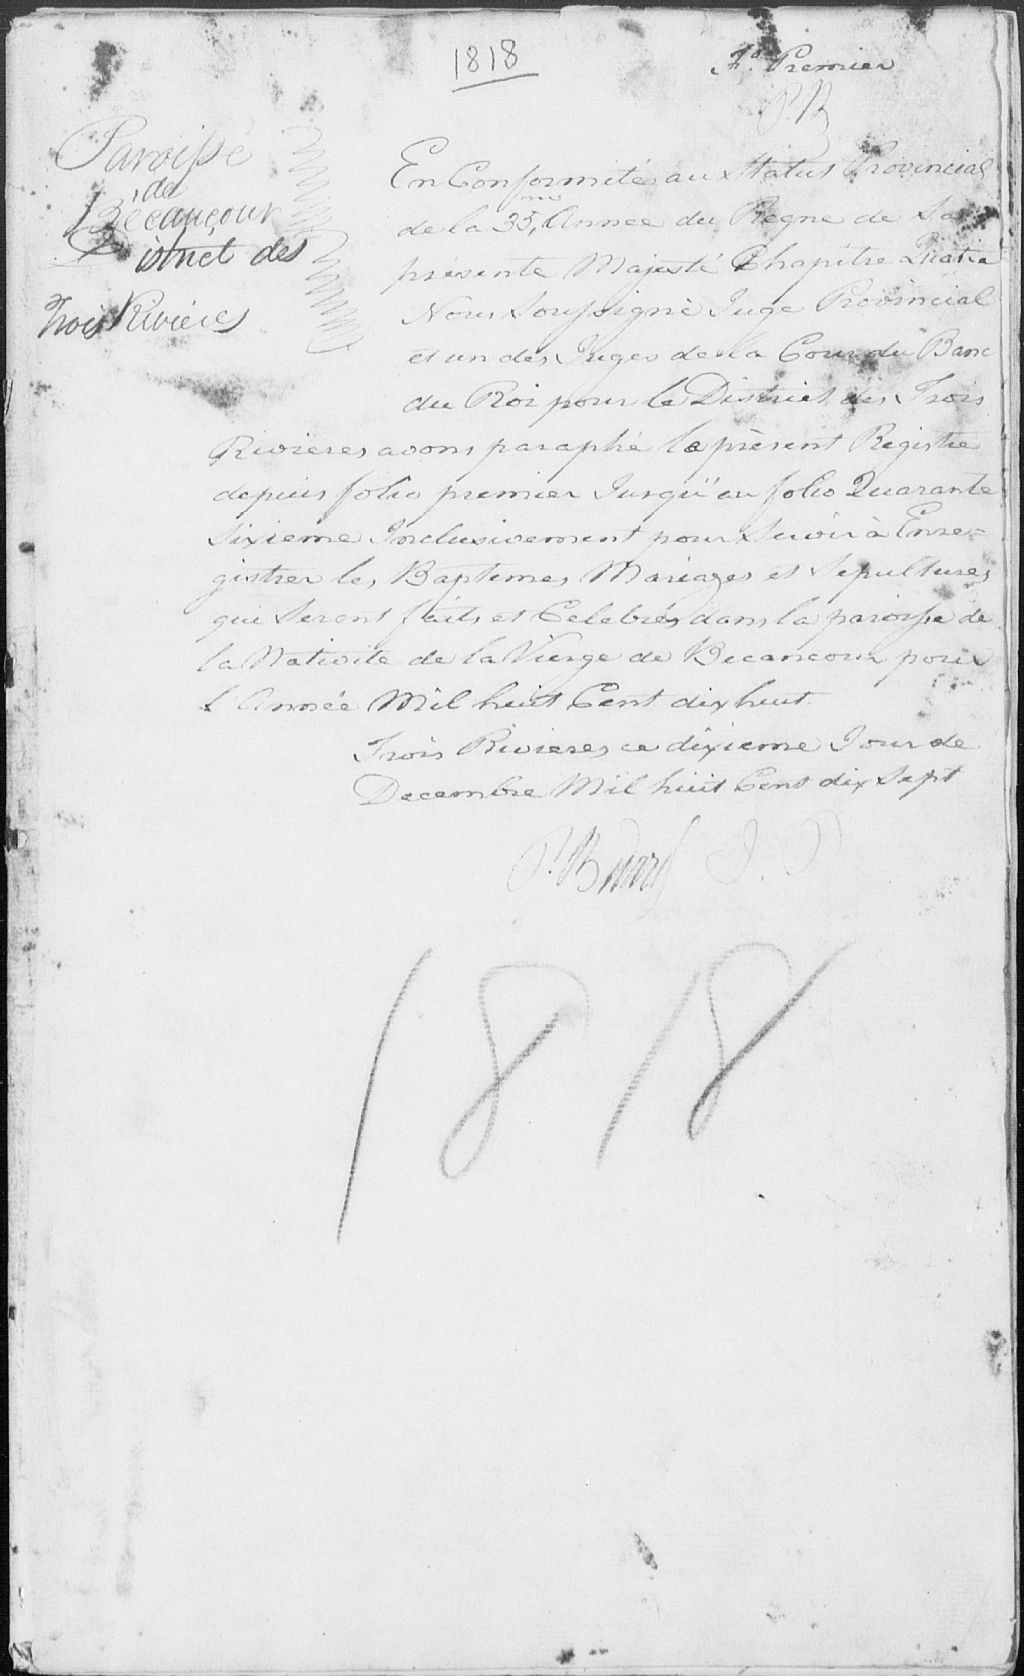 1818
Fo. Premier
P. B
Paroisse
de
Becancour
District des
Trois Rivieres
En Conformité au Statut Provincial
de la 35me Année du Regne de Sa
présente Majesté Chapitre Quatre
Nous Soussigné Juge Provincial
et un des Juges de la Cour du Banc
du Roi pour le District des Trois
Rivieres avons paraphé le présent Registre
depuis folio premier Jusqu'au folio Quarante
Sixieme Inclusivement pour Servir à Enre=
gistrer les Baptemes, Mariages et Sepultures
qui Seront faits et Celebrés dans la paroisse de
la Nativité de la Vierge de Becancour pour
l'Année Mil huit Cent dix huit.
Trois Rivieres ce dixieme Jour de
Decembre Mil huit Cent dix Sept
P. Bedard J. P
1818